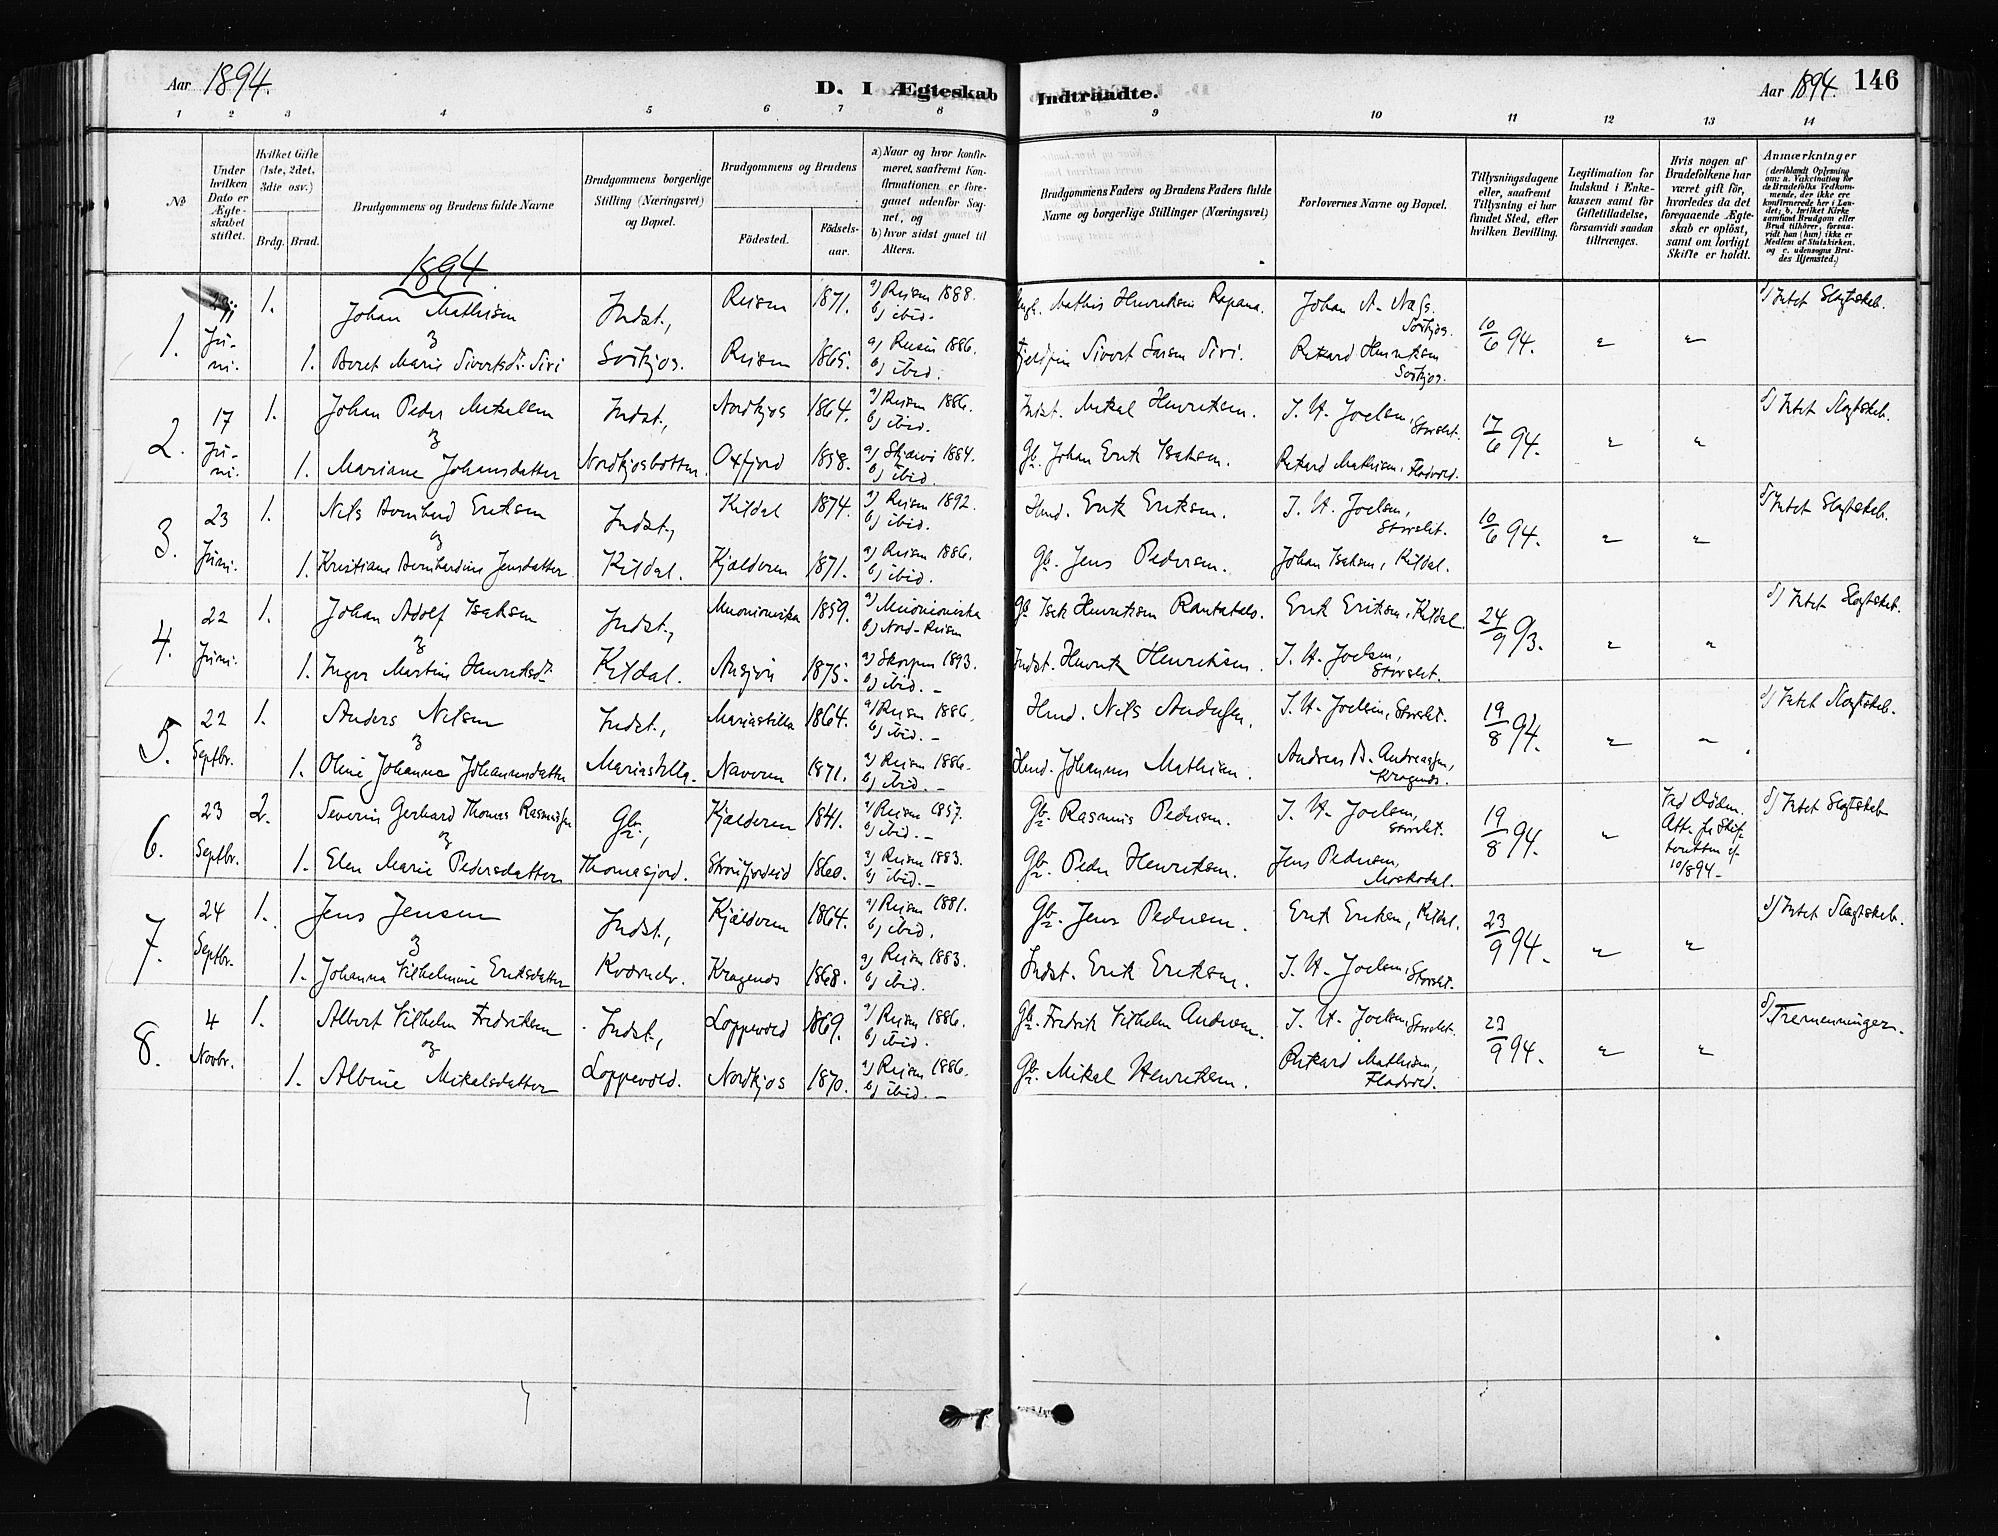 Aar 1894.
D. I Ægteskab Indtraadte.
Aar 1894. 146
1 2 3 4 5 6 7 8 9 10 11 12 13 14
No
Under hvilken Dato er Ægteskabet stiftet.
Hvilket Gifte (1ste, 2det, 3die osv.)
Brdg. Brud.
Brudgommens og Brudens fulde Navne
Brudgommens borgerlige Stilling (Næringsvei) og Bopæl.
Brudgommens og Brudens
Födested.
Födselsaar.
a) Naar og hvor konfirmeret, saafremt Konfirmationen er foregaaet udenfor Sognet, og
b) hvor sidst gaaet til Alters.
Brudgommens Faders og Brudens Faders fulde Navne og borgerlige Stillinger (Næringsvei)
Forlovernes Navne og Bopæl.
Tillysningsdagene eller, saafremt Tillysning ei har fundet Sted, efter hvilken Bevilling.
Legitimation for Indskud i Enkekassen samt for Giftetilladelse, forsaavidt saadan tiltrænges.
Hvis nogen af Brudefolkene har været gift för, hvorledes da det foregaaende Ægteskab er oplöst, samt om lovligt Skifte er holdt.
Anmærkninger (deriblandt Oplysning om: a. Vaccination for de Brudefolks Vedkommende, der ikke ere konfirmerede her i Landet; b. hvilket Kirkesamfund Brudgom eller Brud tilhörer, forsaavidt han (hun) ikke er Medlem af Statskirken, og c. udensogns Brudes Hjemsted.)
1894.
1. Juni. 1. Johan Mathisen Indst., Reisen 1871. a) Reisen 1888. b) ibid. Mathis Henriksen Rapana. Johan A. Næss. Sörkjos. 10/6 94. " " Intet Slægtskab.
& 1. Beret Marie Sivertsdt. Siri Sörkjos. Reisen 1865. a) Reisen 1886. b) ibid. Sivert Larsen Siri. Rikard Henriksen Sörkjos.
2. 17 Juni. 1. Johan Peder Mikalsen Indst., Nordkjos 1864. a) Reisen 1886. b) ibid. Indst. Mikal Henriksen. J. H. Joelsen, Storslet. 17/6 94. " " Intet Slægtskab.
& 1. Mariane Johansdatter Nordkjosbotten. Oxfjord 1858. a) Skjærvö 1884. b) ibid. Gb. Johan Erik Isaksen. Rikard Mathisen, Fladvold.
3. 23 Juni. 1. Nils Bernhard Eriksen Indst., Kildal 1874. a) Reisen 1892. b) ibid. Hmd. Erik Eriksen. J. H. Joelsen, Storslet. 10/6 94. " " Intet Slægtskab.
& 1. Kristiane Bernhardine Jensdatter Kildal. Kjælderen 1871. a) Reisen 1886. b) ibid. Gb. Jens Pedersen. Johan Isaksen, Kildal.
4. 22 Juni. 1. Johan Adolf Isaksen Indst., Muonioniska 1859. a) Muonioniska b) Nord-Reisen Gb. Isak Henriksen Rantatalo. Erik Eriksen, Kildal. 24/9 93. " " Intet Slægtskab.
& 1. Inger Martine Henriksdt. Kildal. 1875. a) Skorpen 1893. b) ibid. Indst. Henrik Henriksen. J. H. Joelsen, Storslet.
5. 22 Septbr. 1. Anders Nilsen Indst., Mariastilla 1864. a) Reisen 1886. b) ibid. Hmd. Nils Andersen. J. H. Joelsen, Storslet. 19/8 94. " " Intet Slægtskab.
& 1. Oline Johanna Johannesdatter Mariastilla. Naveren 1871. a) Reisen 1886. b) ibid. Hmd. Johannes Mathisen. Andreas B. Andreassen, Kragenes.
6. 23 Septbr. 2. Severin Gerhard Thomas Rasmussen Gbr., Kjælderen 1841. a) Reisen 1857. b) ibid. Gbr. Rasmus Pedersen. J. H. Joelsen, Storslet. 19/8 94. " Ved Döden. Att. fr Skifteretten af 10/8 94. Intet Slægtskab
& 1. Elen Marie Pedersdatter Thomasjord. Storfjordeid 1860. a) Reisen 1883. b) ibid. Gbr. Peder Henriksen. Jens Pedersen, Moskodal.
7. 24 Septbr. 1. Jens Jensen Indst., Kjælderen 1864. a) Reisen 1881. b) ibid. Gbr. Jens Pedersen. Erik Eriksen, Kildal. 23/9 94. " " Intet Slægtskab.
& 1. Johanna Vilhelmine Eriksdatter Kværnelv. Kragenes 1868. a) Reisen 1883. b) ibid. Indst. Erik Eriksen. J. H. Joelsen, Storslet.
8. 4 Novbr. 1. Albert Vilhelm Fredriksen Indst., Loppevold 1869. a) Reisen 1886. b) ibid. Gbr. Fredrik Vilhelm Andersen. J. H. Joelsen, Storslet. 23/9 94. " " Tremenninger.
& 1. Albine Mikalsdatter Loppevold. Nordkjos 1870. a) Reisen 1886. b) ibid. Gbr. Mikal Henriksen. Rikard Mathisen, Fladvold.